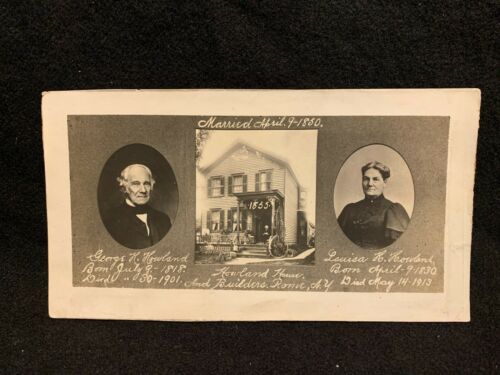 Married April. 9-1850.
1855
George H. Howland
Born July 9-1818.
Died " 30-1901.
Howland House.
And Builders. Rome, N.Y.
Louisa H. Howland
Born April-9-1830
Died May 14-1913